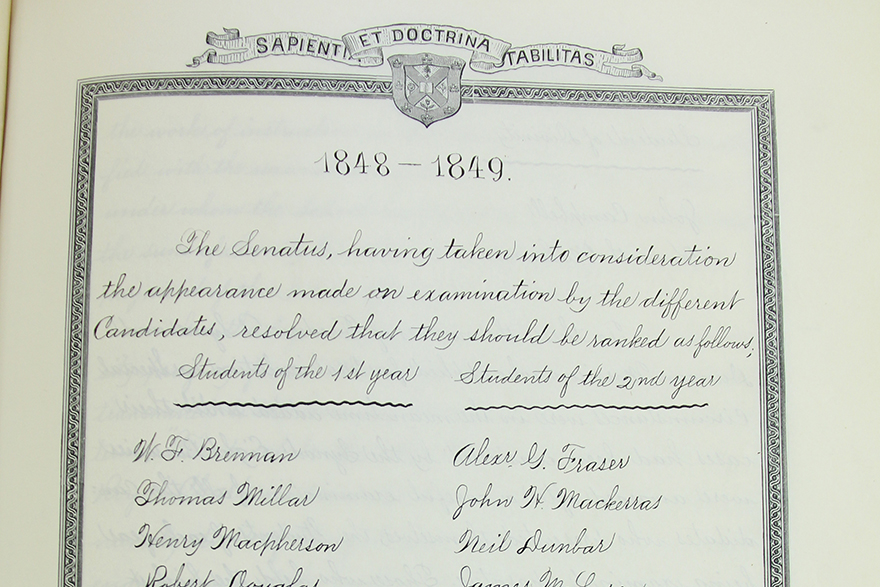 SAPIENTI ET DOCTRINA TABILITAS
1848 – 1849.
The Senatus, having taken into consideration
the appearance made on examination by the different
Candidates, resolved that they should be ranked as follows;
Students of the 1st year
W. F. Brennan
Thomas Millar
Henry Macpherson
Robert Douglas
Students of the 2nd year
Alexr. G. Fraser
John H. Mackerras
Neil Dunbar
James M.